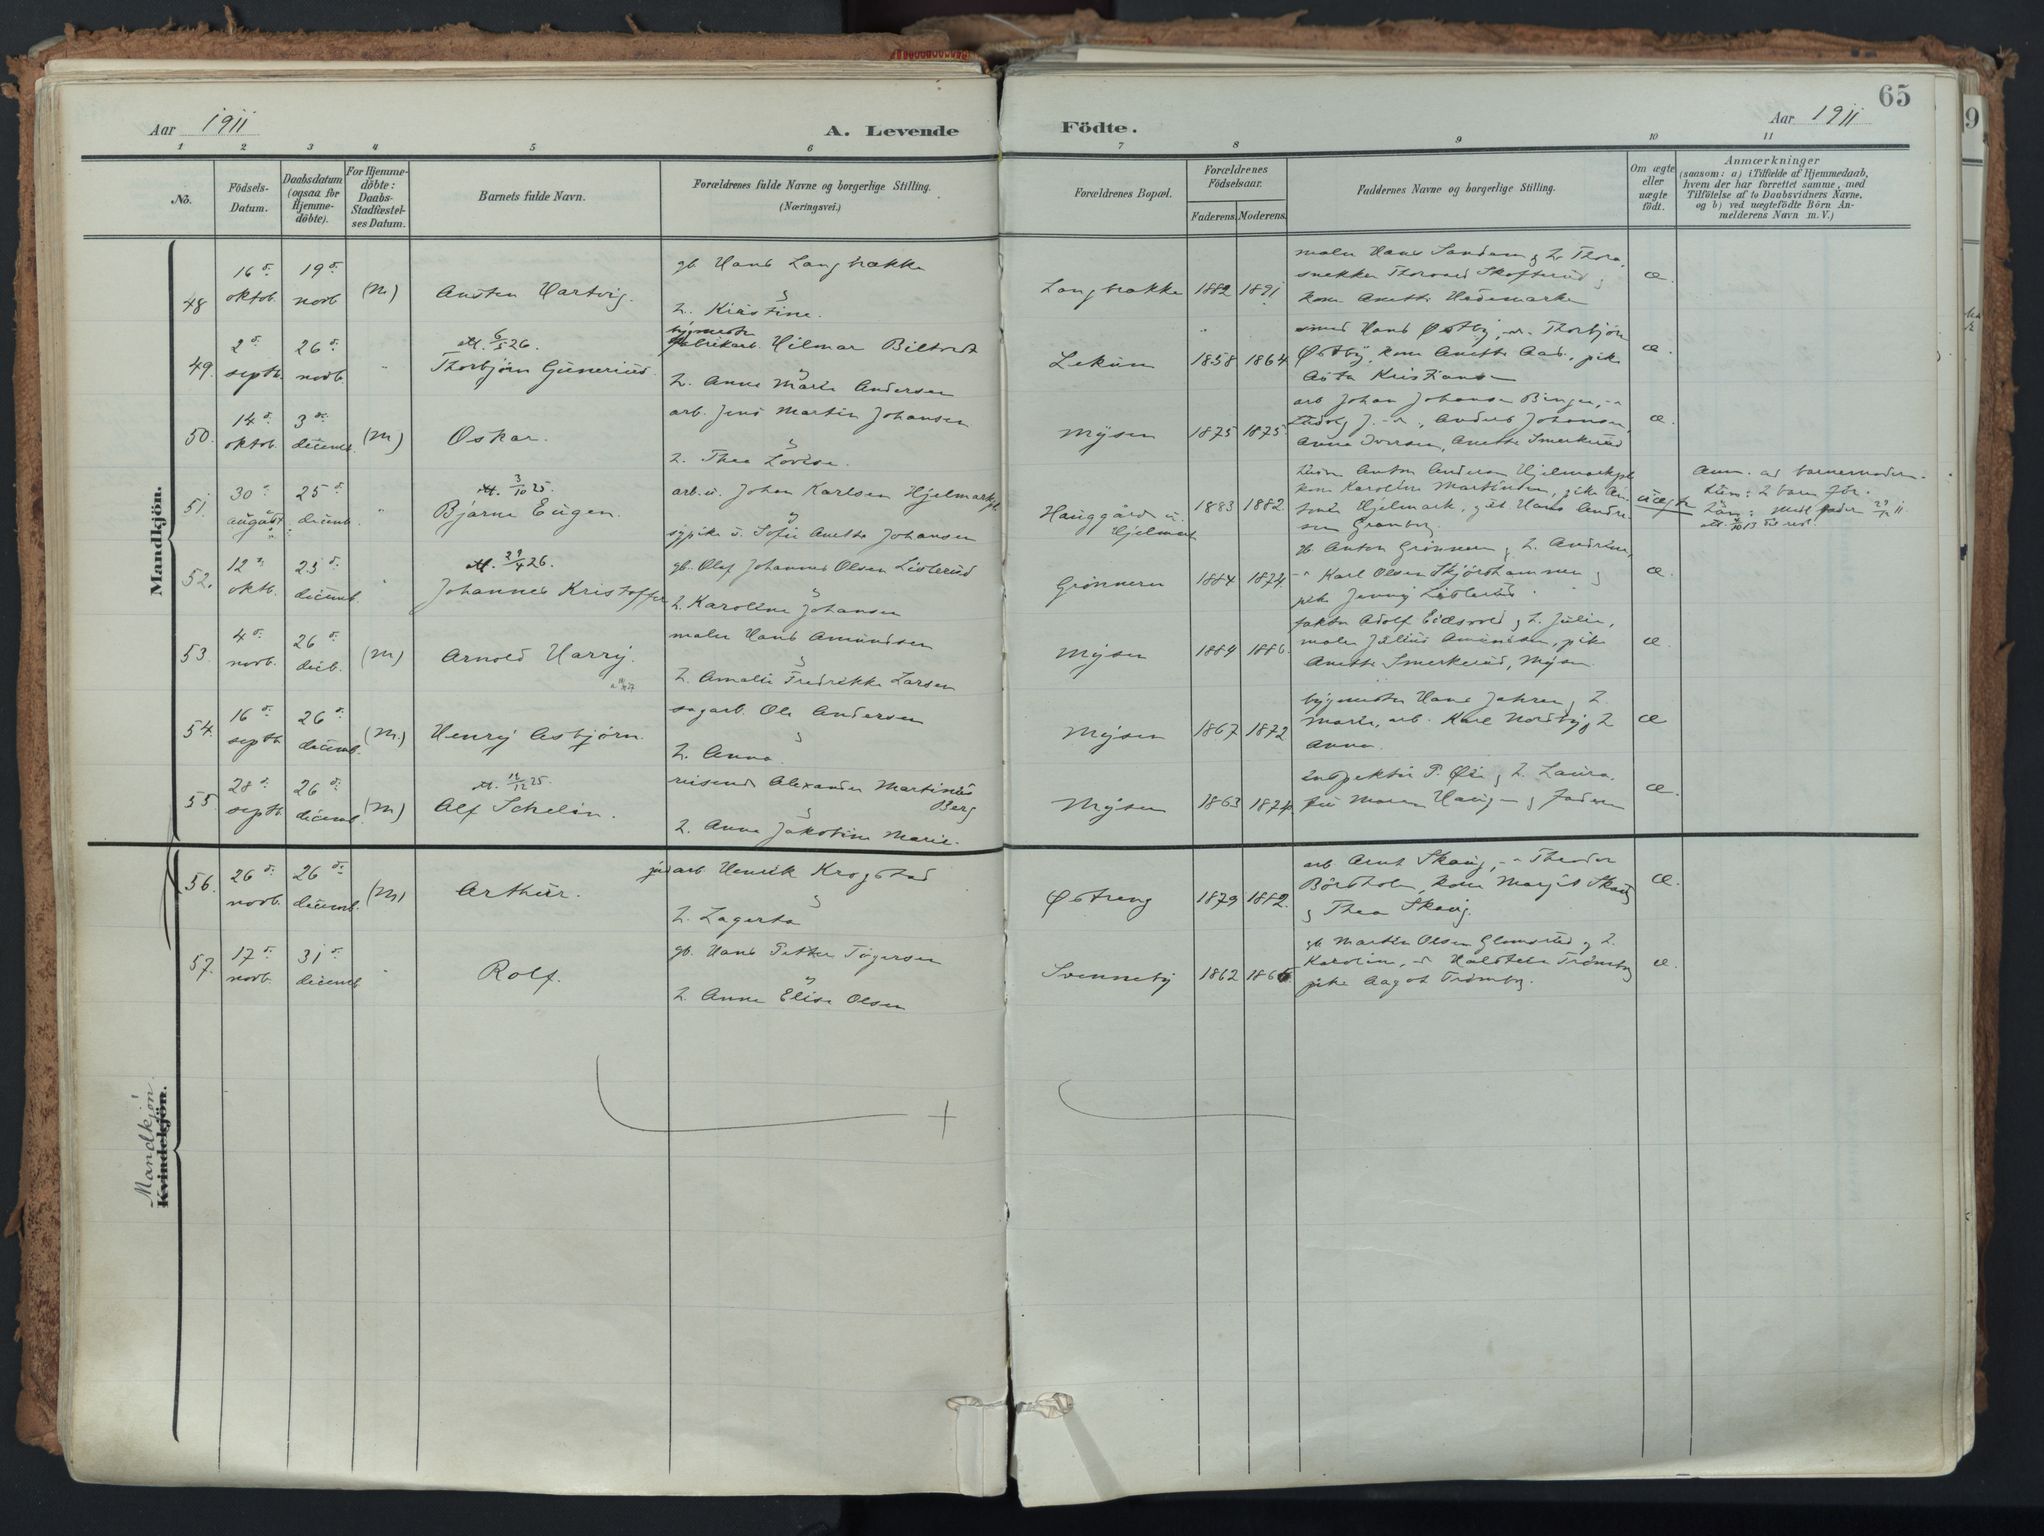 Aar 1911
A. Levende
Födte.
Aar 1911
65
1 2 3 4 5 6 7 8 9 10 11
No.
Födsels-
Datum.
Daabsdatum
(ogsaa for
Hjemme-
döbte).
For Hjemme-
döbte:
Daabs-
Stadfæstel-
ses Datum.
Barnets fulde Navn.
Forældrenes fulde Navne og borgerlige Stilling.
(Næringsvei.)
Forældrenes Bopæl.
Forældrenes
Födselsaar.
Faderens. Moderens.
Faddernes Navne og borgerlige Stilling.
Om ægte
eller
uægte
födt.
Anmærkninger
(saasom: a) i Tilfælde af Hjemmedaab,
hvem der har forrettet samme, med
Tilföielse af to Daabsvidners Navne,
og b) ved uægtefödte Börn An-
melderens Navn m. V.)
Mandkjön.
48
16 d.
oktob.
19 d.
novb.
(M)
Austen Hartvig.
gb. Hans Langbrække
&
h. Kirstine.
Langbrække
1882
1891
maler Hans Sandem & h. Thora,
snekker Thorvald Skofterud &
kone Anette Hedemarken
æ.
49.
2 d.
septb.
26 d.
novb.
"
Att. 6/5 26.
Thorbjørn Gunerius.
bygmester
fabrikarb. Hilmar Biltvedt
&
h. Anne Marie Andersen
Lekum
1858
1864
smed Hans Østby, -"- Thorbjørn
Østby, kone Anette Aas, pike
Asta Kristiansen
æ.
50.
14 d.
oktob.
3 d.
decemb.
(M)
Oskar.
arb. Jens Martin Johansen
&
h. Thea Lovise.
Mysen
1875
1875.
arb Johan Johansen Binger, -"-
Ludvig J. -"-, Anders Johansen,
Anna Iversen, Anette Smerkerud
æ.
51.
30 d.
august
25 d.
decemb.
"
Att. 3/10 25.
Bjarne Eugen.
arb. u. Johan Karlsen Hjelmarkpl.
&
sypike u. Sofie Anette Johansen
Hauggård u.
Hjelmark
1883
1882.
Anton Andersen Hjelmarkpl.
kone Karoline Martinsen, pike An-
Hjelmark, gut Hans Andre-
sen Granberg
uægte
Anm. av barnemoderen.
hun: 2 barn før.
52.
12 d.
oktb.
25 d.
decemb.
"
Att. 29/4 26.
Johannes Kristoffer
gb. Olaf Johannes Olsen Listerud
&
h. Karoline Johansen
Grønnern
1884
1874.
gb. Anton Grønnern & h. Andrine,
-"- Karl Olsen Skjørshammer &
pike Jenny Listerud.
æ.
53.
4 d.
novb.
26 d.
decb.
(M)
Arnold Harry.
maler Hans Amundsen
&
h. Amalie Fredrikke Larsen
Mysen
1884
1886.
faktor Adolf Eidsvold & h. Julie,
maler Julius Amundsen, pike
Anette Smerkerud, Mysen
æ.
54.
16 d.
septb.
26 d.
decemb.
(M.)
Henry Asbjørn.
sagarb. Ole Andersen
&
h. Anna.
Mysen
1867
1872
bygmester Hans Jahren & h.
Marie, arb. Karl Nordby & h
Anna.
æ
55.
28 d.
septb.
26 d.
decemb.
(M)
Att. 12/12 25.
Alf Schelin.
reisende Alexander Martinius
Berg
&
h. Anna Jakobine Marie.
Mysen
1863
1874.
inspektør P. Øie & h. Laura.
fru Maren Haugen & faderen
æ.
56.
26 d.
novb.
26 d.
decemb.
(M)
Arthur.
jordarb Henrik Krogstad
&
h. Lagerta
Østreng
1879
1882.
arb. Arnt Skaug, -"- Theodor
Børsholm, kone Margit Skaug
& Thea Skaug.
æ.
57.
17 d.
novb.
31 d.
decemb.
"
Rolf.
gb. Hans Petter Tøgersen
&
h. Anne Elise Olsen
Svenneby
1862
1865
gb Martin Olsen Glomsrud & h.
Karoline, -"- Halstein Trømborg
pike Aagot Trømborg.
æ.
Mandkjön!
Kvindekjön.